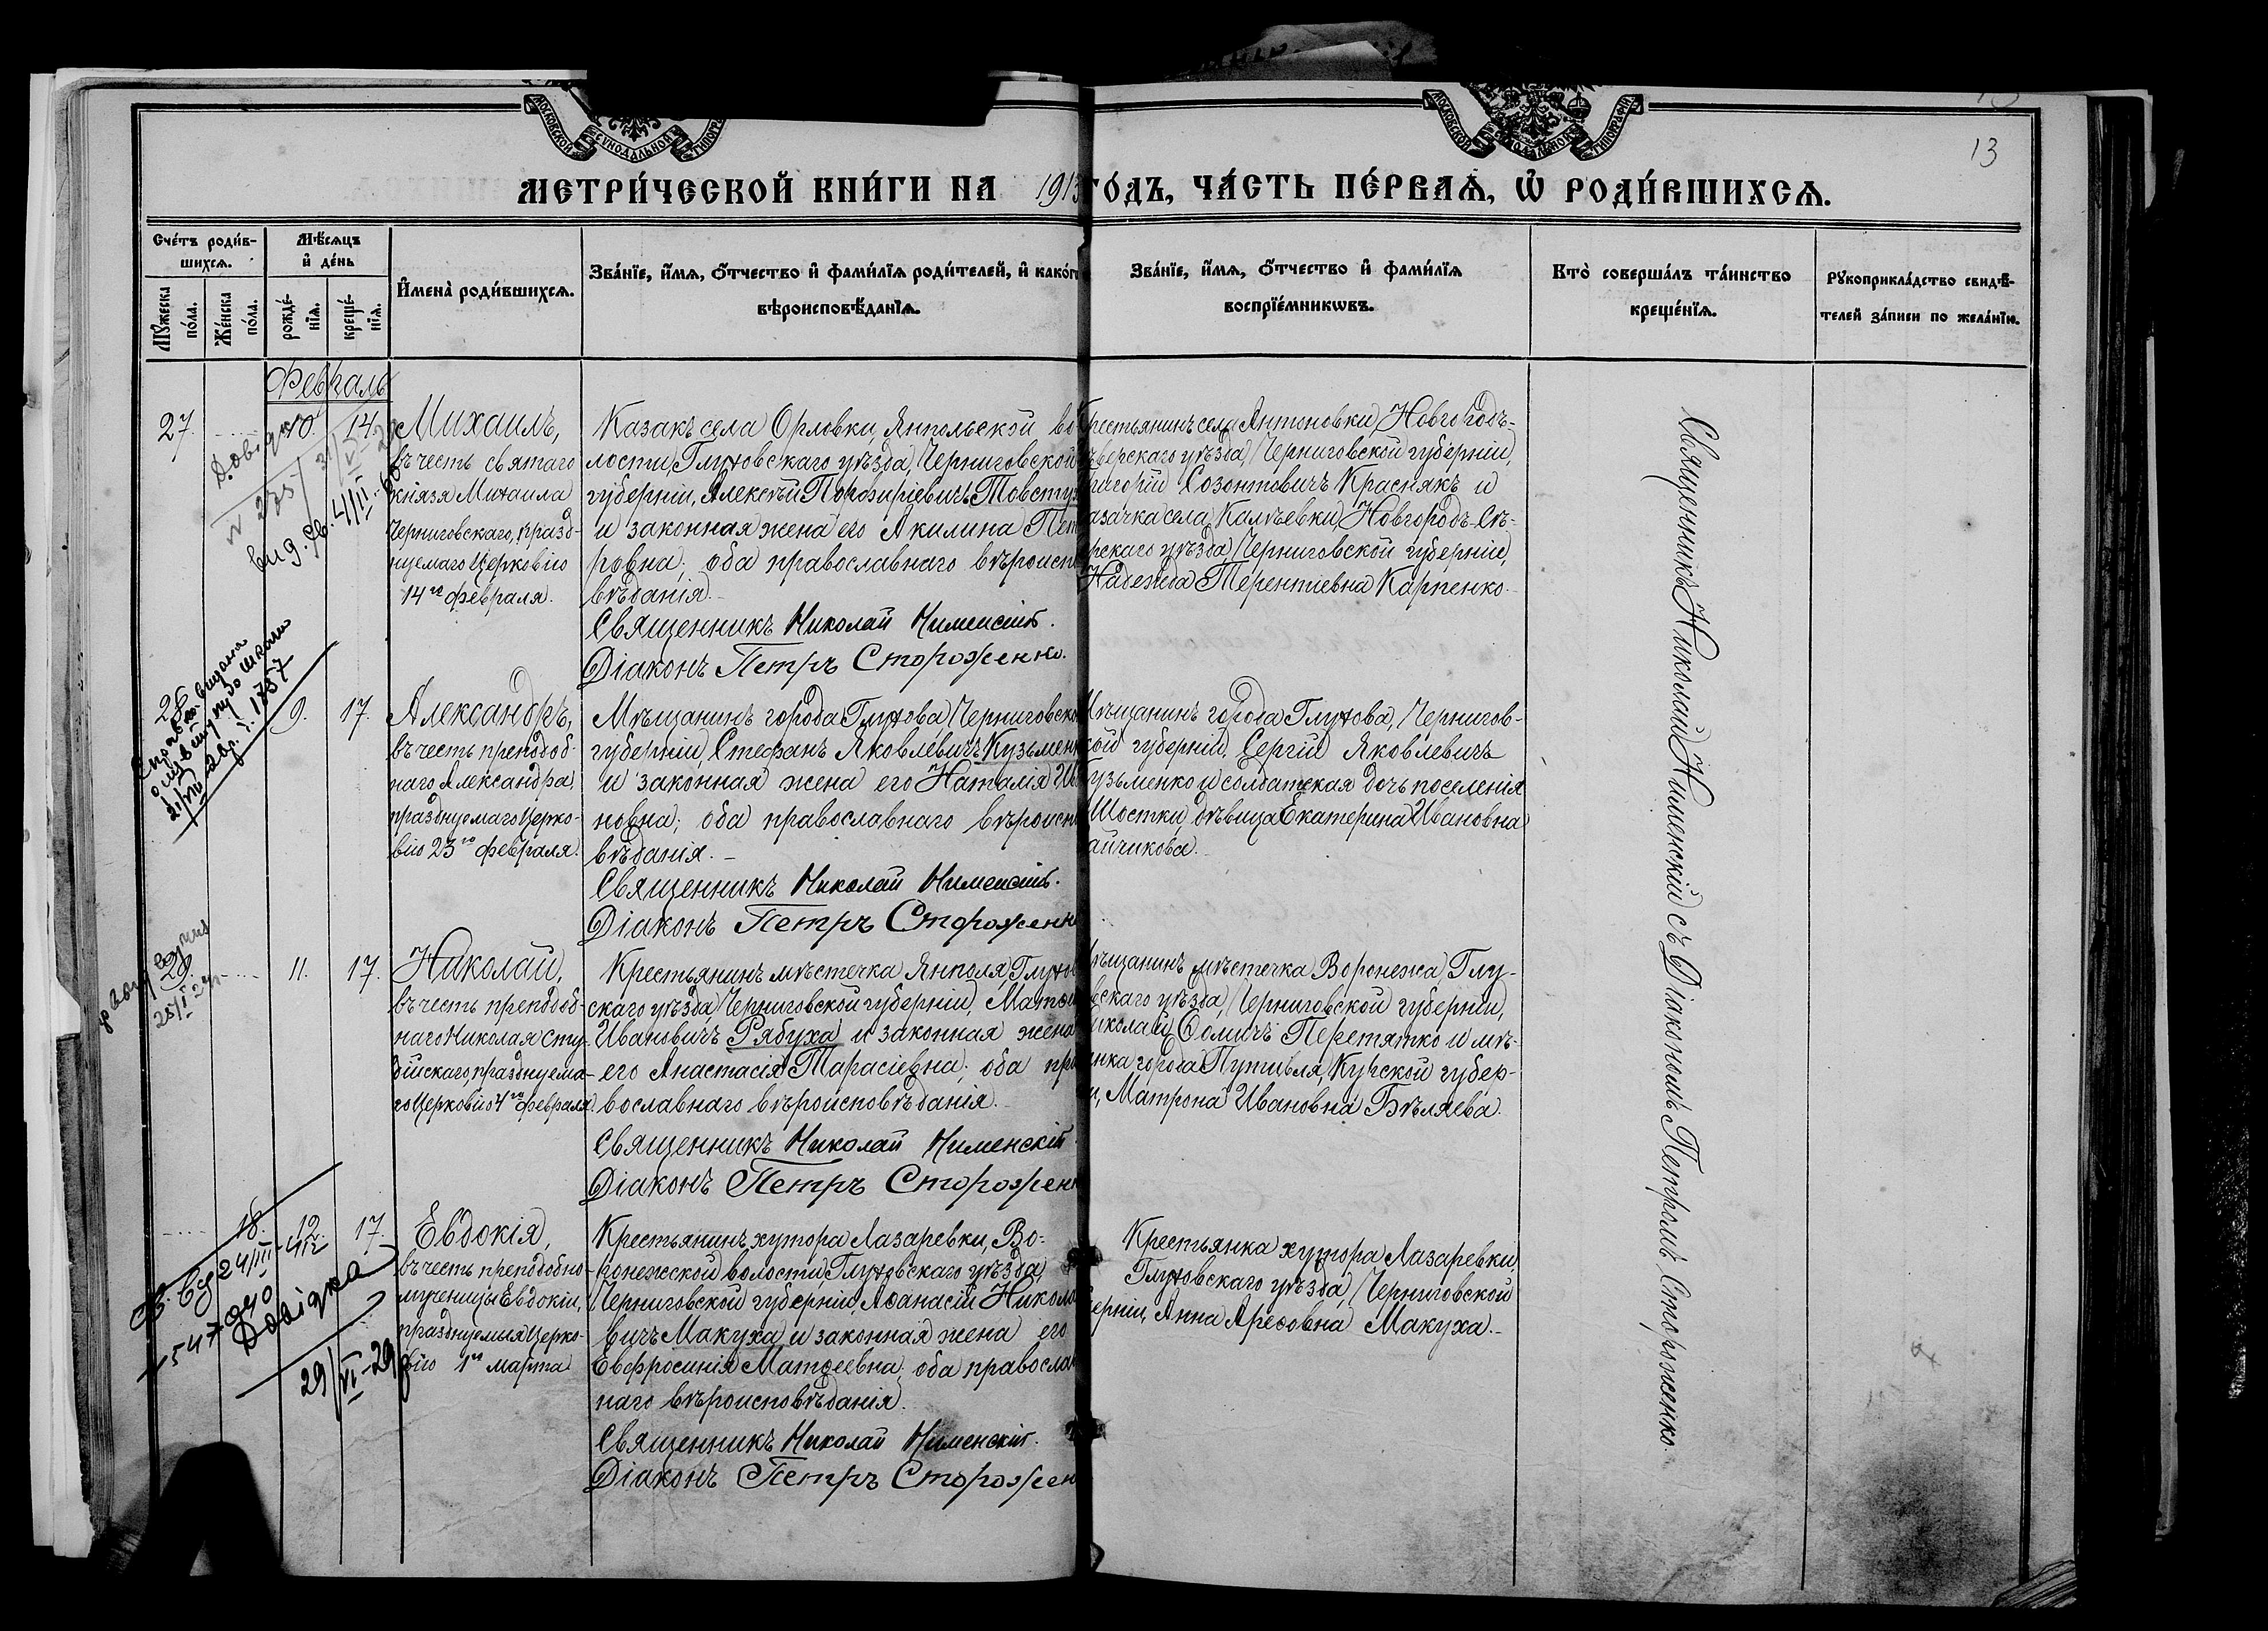 МОСКОВСКОЙ СѴНОДАЛЬНОЙ ТИПОГРАФІИ
МОСКОВСКОЙ СѴНОДАЛЬНОЙ ТИПОГРАФІИ
13
МЕТРИ́ЧЕСКОЙ КНИ́ГИ НА 1913 ГО́ДЪ, ЧА́СТЬ ПЕ́РВАѦ, Ѡ҆ РОДИ́ВШИХСѦ.
Сче́тъ роди́вшихсѧ.
Мꙋ́жеска по́ла.
Же́нска по́ла.
Мѣ́сѧцъ и҆ де́нь
рожде́нїѧ.
креще́нїѧ.
И҆мена̀ роди́вшихсѧ.
Зва́нїе, и҆́мѧ, ѻ҆́тчество и҆ фами́лїѧ роди́телей, и҆ како́г
вѣроисповѣ́данїѧ.
Зва́нїе, и҆́мѧ, ѻ҆́тчество и҆ фами́лїѧ
воспрїе́мникѡвъ.
Кто̀ соверша́лъ та́инство
креще́нїѧ.
Рꙋкоприкла́дство свидѣ́-
телей за́писи по жела́нїю.
Февраль
27.
10.
14.
Довідка
N 275
вид. св. 4/II-60
Михаилъ,
въ честь святаго
князя Михаила
Черниговскаго, празд-
нуемаго Церковію
14го февраля.
Казакъ села Орловки, Янпольской во
лости, Глуховскаго уѣзда, Черниговской
губерніи, Алексѣй Порфиріевичъ Товсту
и законная жена его Акилина Пет
ровна; оба православнаго вѣроиспо
вѣданія.
Священникъ Николай Нименскій.
Діаконъ Петръ Стороженко.
рестьянинъ села Антоновки, Новгородъ-
верскаго уѣзда, Черниговской губерніи,
ригорій Созонтовичъ Краснякъ и
азачка села Калѣевки, Новгородъ-Сѣ-
рскаго уѣзда, Черниговской губерніи,
Надежда Терентіевна Карпенко.
28
Справка видана
вступу до школи
1757
9.
17.
Александръ,
въ честь преподоб-
наго Александра,
празднуемаго Церко-
вію 23го февраля.
Мѣщанинъ города Глухова, Черниговско
губерніи, Стефанъ Яковлевичъ Кузьмен
и законная жена его Наталія Ив
новна; оба православнаго вѣроиспо
вѣданія.
Священникъ Николай Нименскій.
Діаконъ Петръ Стороженк
ѣщанинъ города Глухова, Чернигов-
кой губерніи, Сергій Яковлевичъ
узьменко и солдатская дочь поселенія
Шостки, дѣвица Екатерина Ивановна
айчикова.
29.
11.
17.
Николай,
въ честь преподоб-
наго Николая Сту-
дійскаго, празднуема-
го Церковію 4го февраля.
Крестьянинъ мѣстечка Янполя, Глухов
скаго уѣзда, Черниговской губерніи, Матѳ
Ивановичъ Рябуха и законная жена
его Анастасія Тарасіевна; оба пра
вославнаго вѣроисповѣданія.
Священникъ Николай Нименскій.
Діаконъ Петръ Сторожен
ѣщанинъ мѣстечка Воронежа, Глу-
вскаго уѣзда, Черниговской губерніи,
иколай Ѳомичъ Перетятко и мѣ-
нка города Путивля, Курской губер-
и, Матрона Ивановна Бѣляева.
18.
12.
17.
24/III
Довідка
29/VI-29р
Евдокія,
въ честь преподобно-
мученицы Евдокіи,
празднуемыя Церко-
вію 1го марта
Крестьянинъ хутора Лазаревки, Во-
ронежской волости, Глуховскаго уѣзда,
Черниговской губерніи, Аѳанасій Никола
вичъ Макуха и законная жена его
Евфросинія Матѳеевна; оба православ
наго вѣроисповѣданія.
Священникъ Николай Нименскій.
Діаконъ Петръ Сторожен
Крестьянка хутора Лазаревки,
Глуховскаго уѣзда, Черниговской
берніи, Анна Арефовна Макуха.
Священникъ Николай Нименскій съ Діакономъ Петромъ Стороженко.